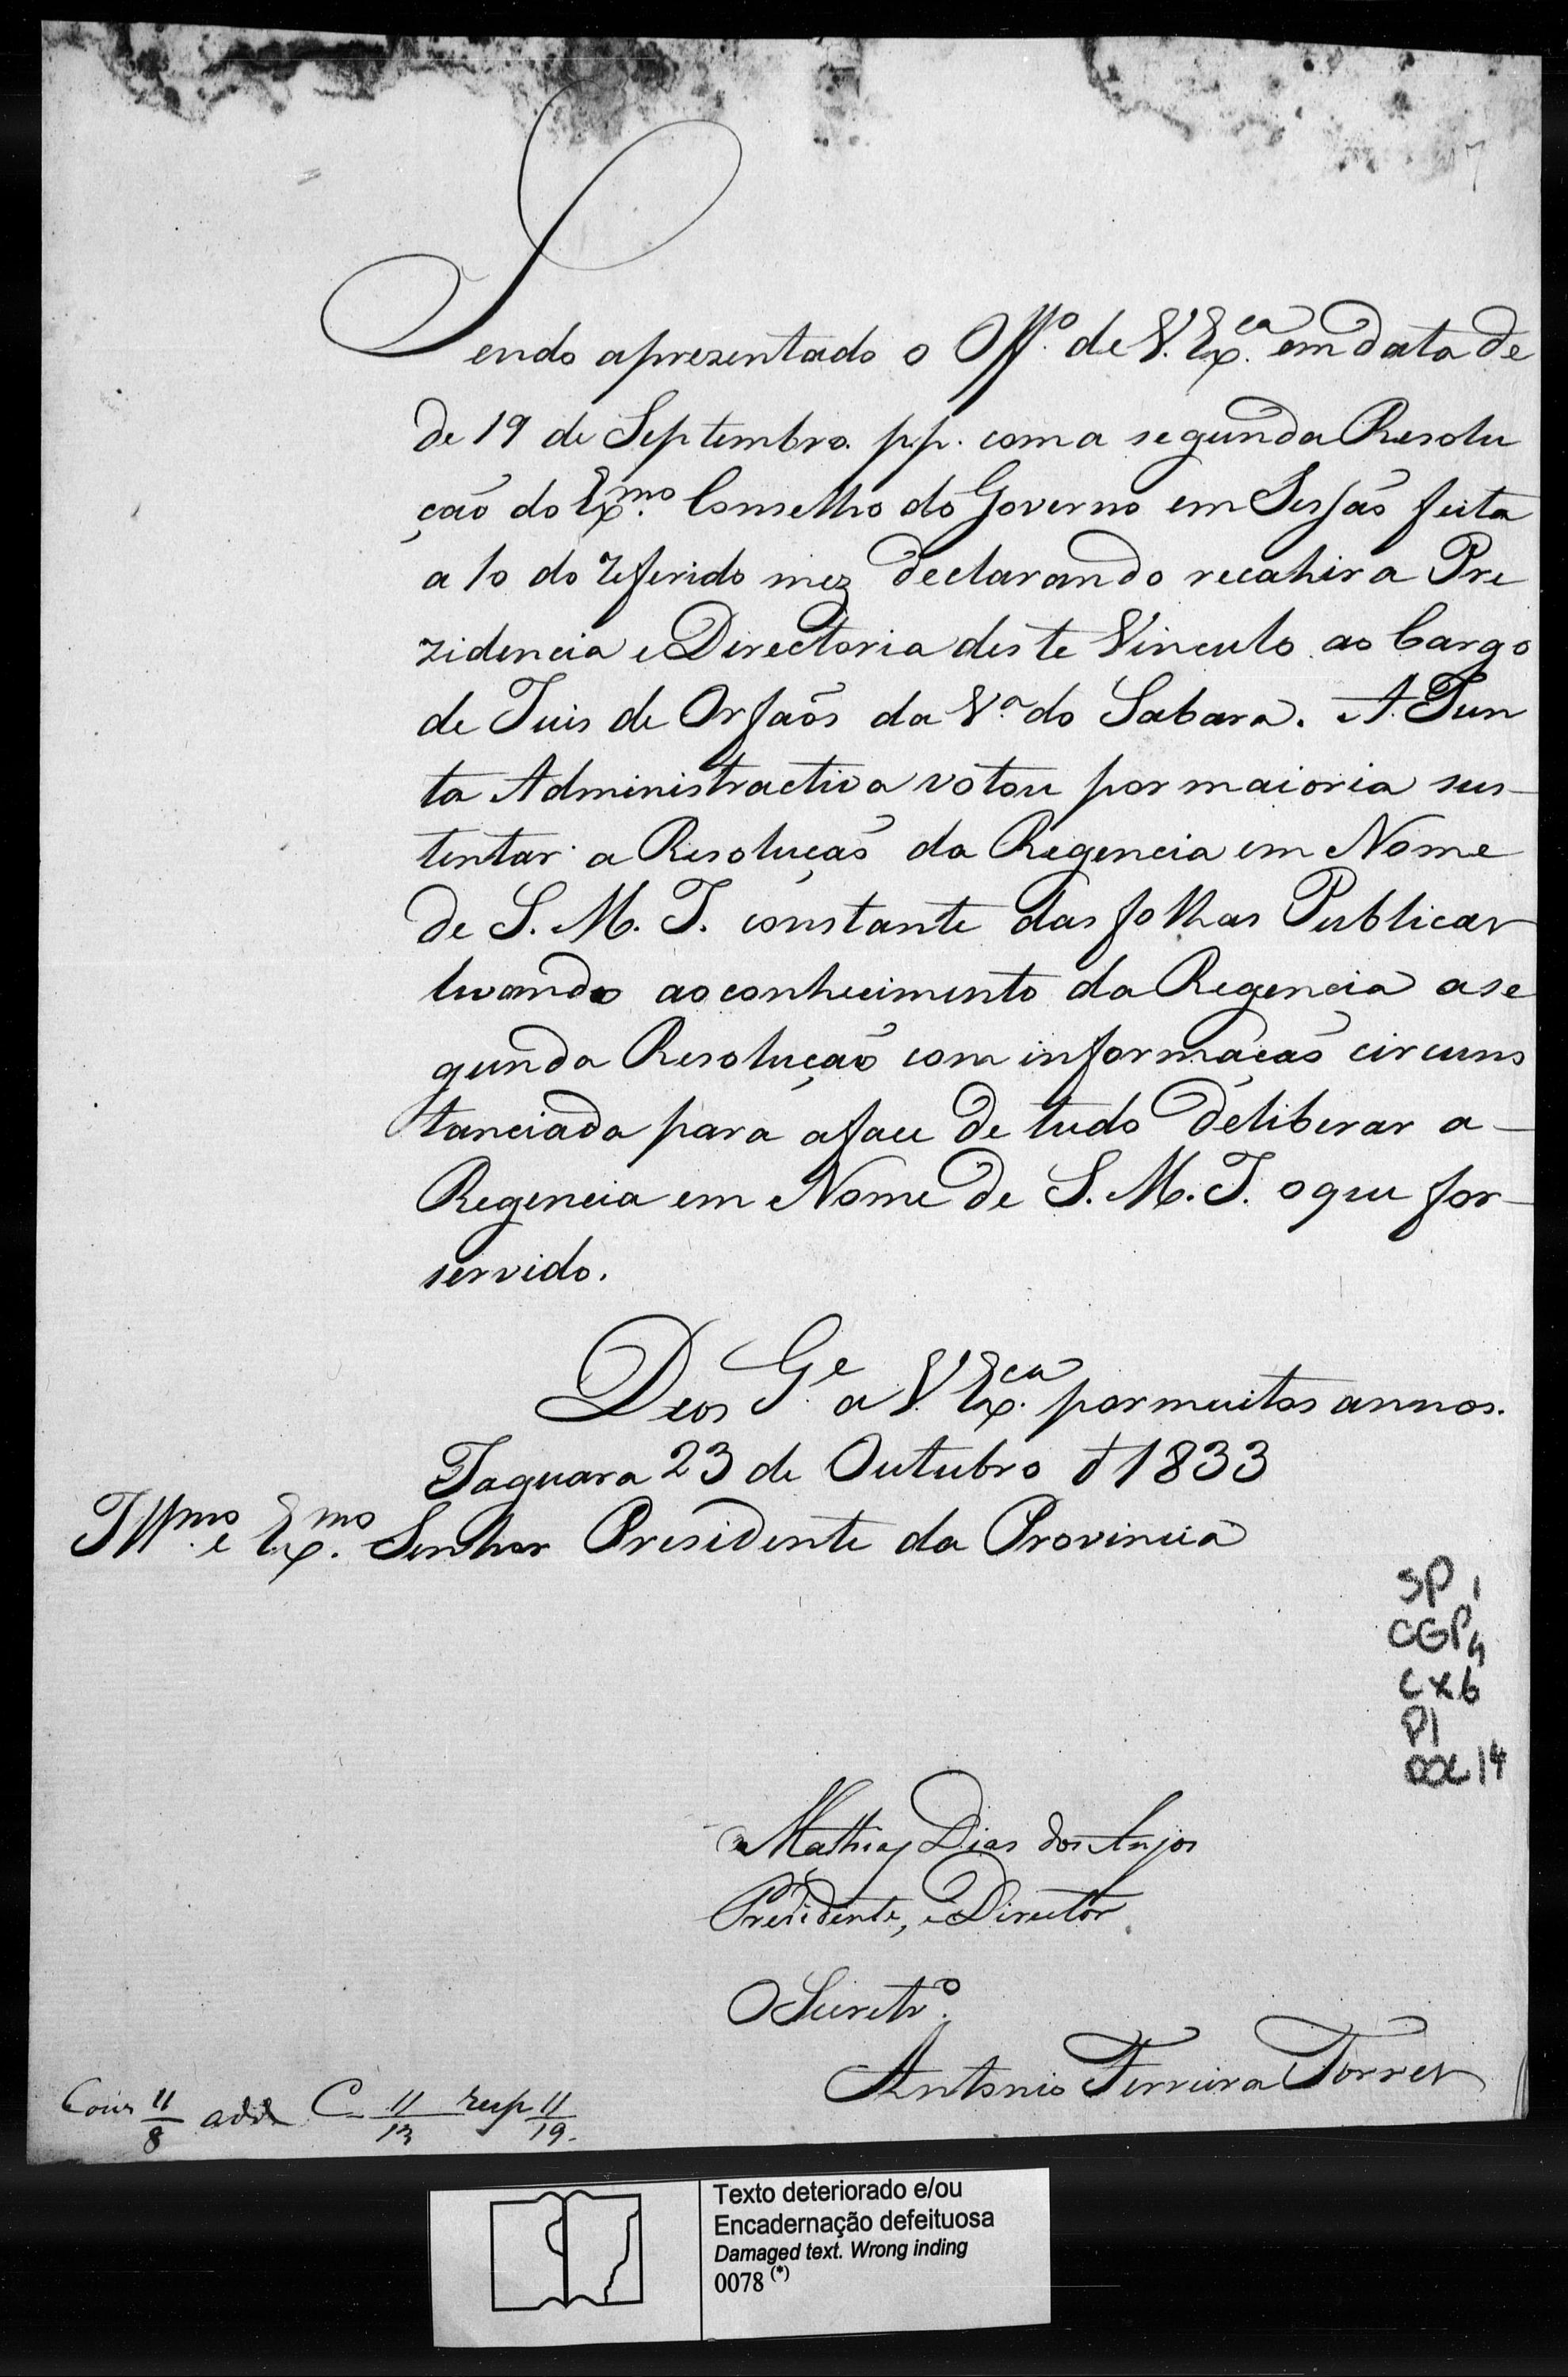 Sendo aprezentado o Off.º de V. Ex.ca em data de
de 19 de Septembro. p.p. com a segunda Resolu
ção do Ex.mo Conselho do Governo em Sessaõ feita
a 10 do referido mez declarando recahir a Pre
zidencia e Directoria deste Vinculo ao Cargo
de Juis de Orfaõs da V.ª do Sabara. A Jun
ta Administractiva votou por maioria sus-
tentar a Resoluçaõ da Regencia em Nome
de S. M. I. constante das folhas Publicas
levando ao conhecimento da Regencia a se
gunda Resoluçaõ com informaçaõ circuns
tanciada para a face de tudo deliberar a -
Regencia em Nome de S. M. I. o que for -
servido.
Deos G.e a V. Ex.ca por muitos annos.
Jaguara 23 de Outubro d 1833
Ill.mo e Ex.mo Senhor Presidente da Provincia
SP 1
CGP 4
CX 6
P1
DOC 14
Mathias Dias dos Anjos
Presidente, e Director
O Secretr.º
Antonio Ferreira Torres
C. 11/13 resp 11/19.
Texto deteriorado e/ou
Encadernação defeituosa
Damaged text. Wrong inding
0078 (*)